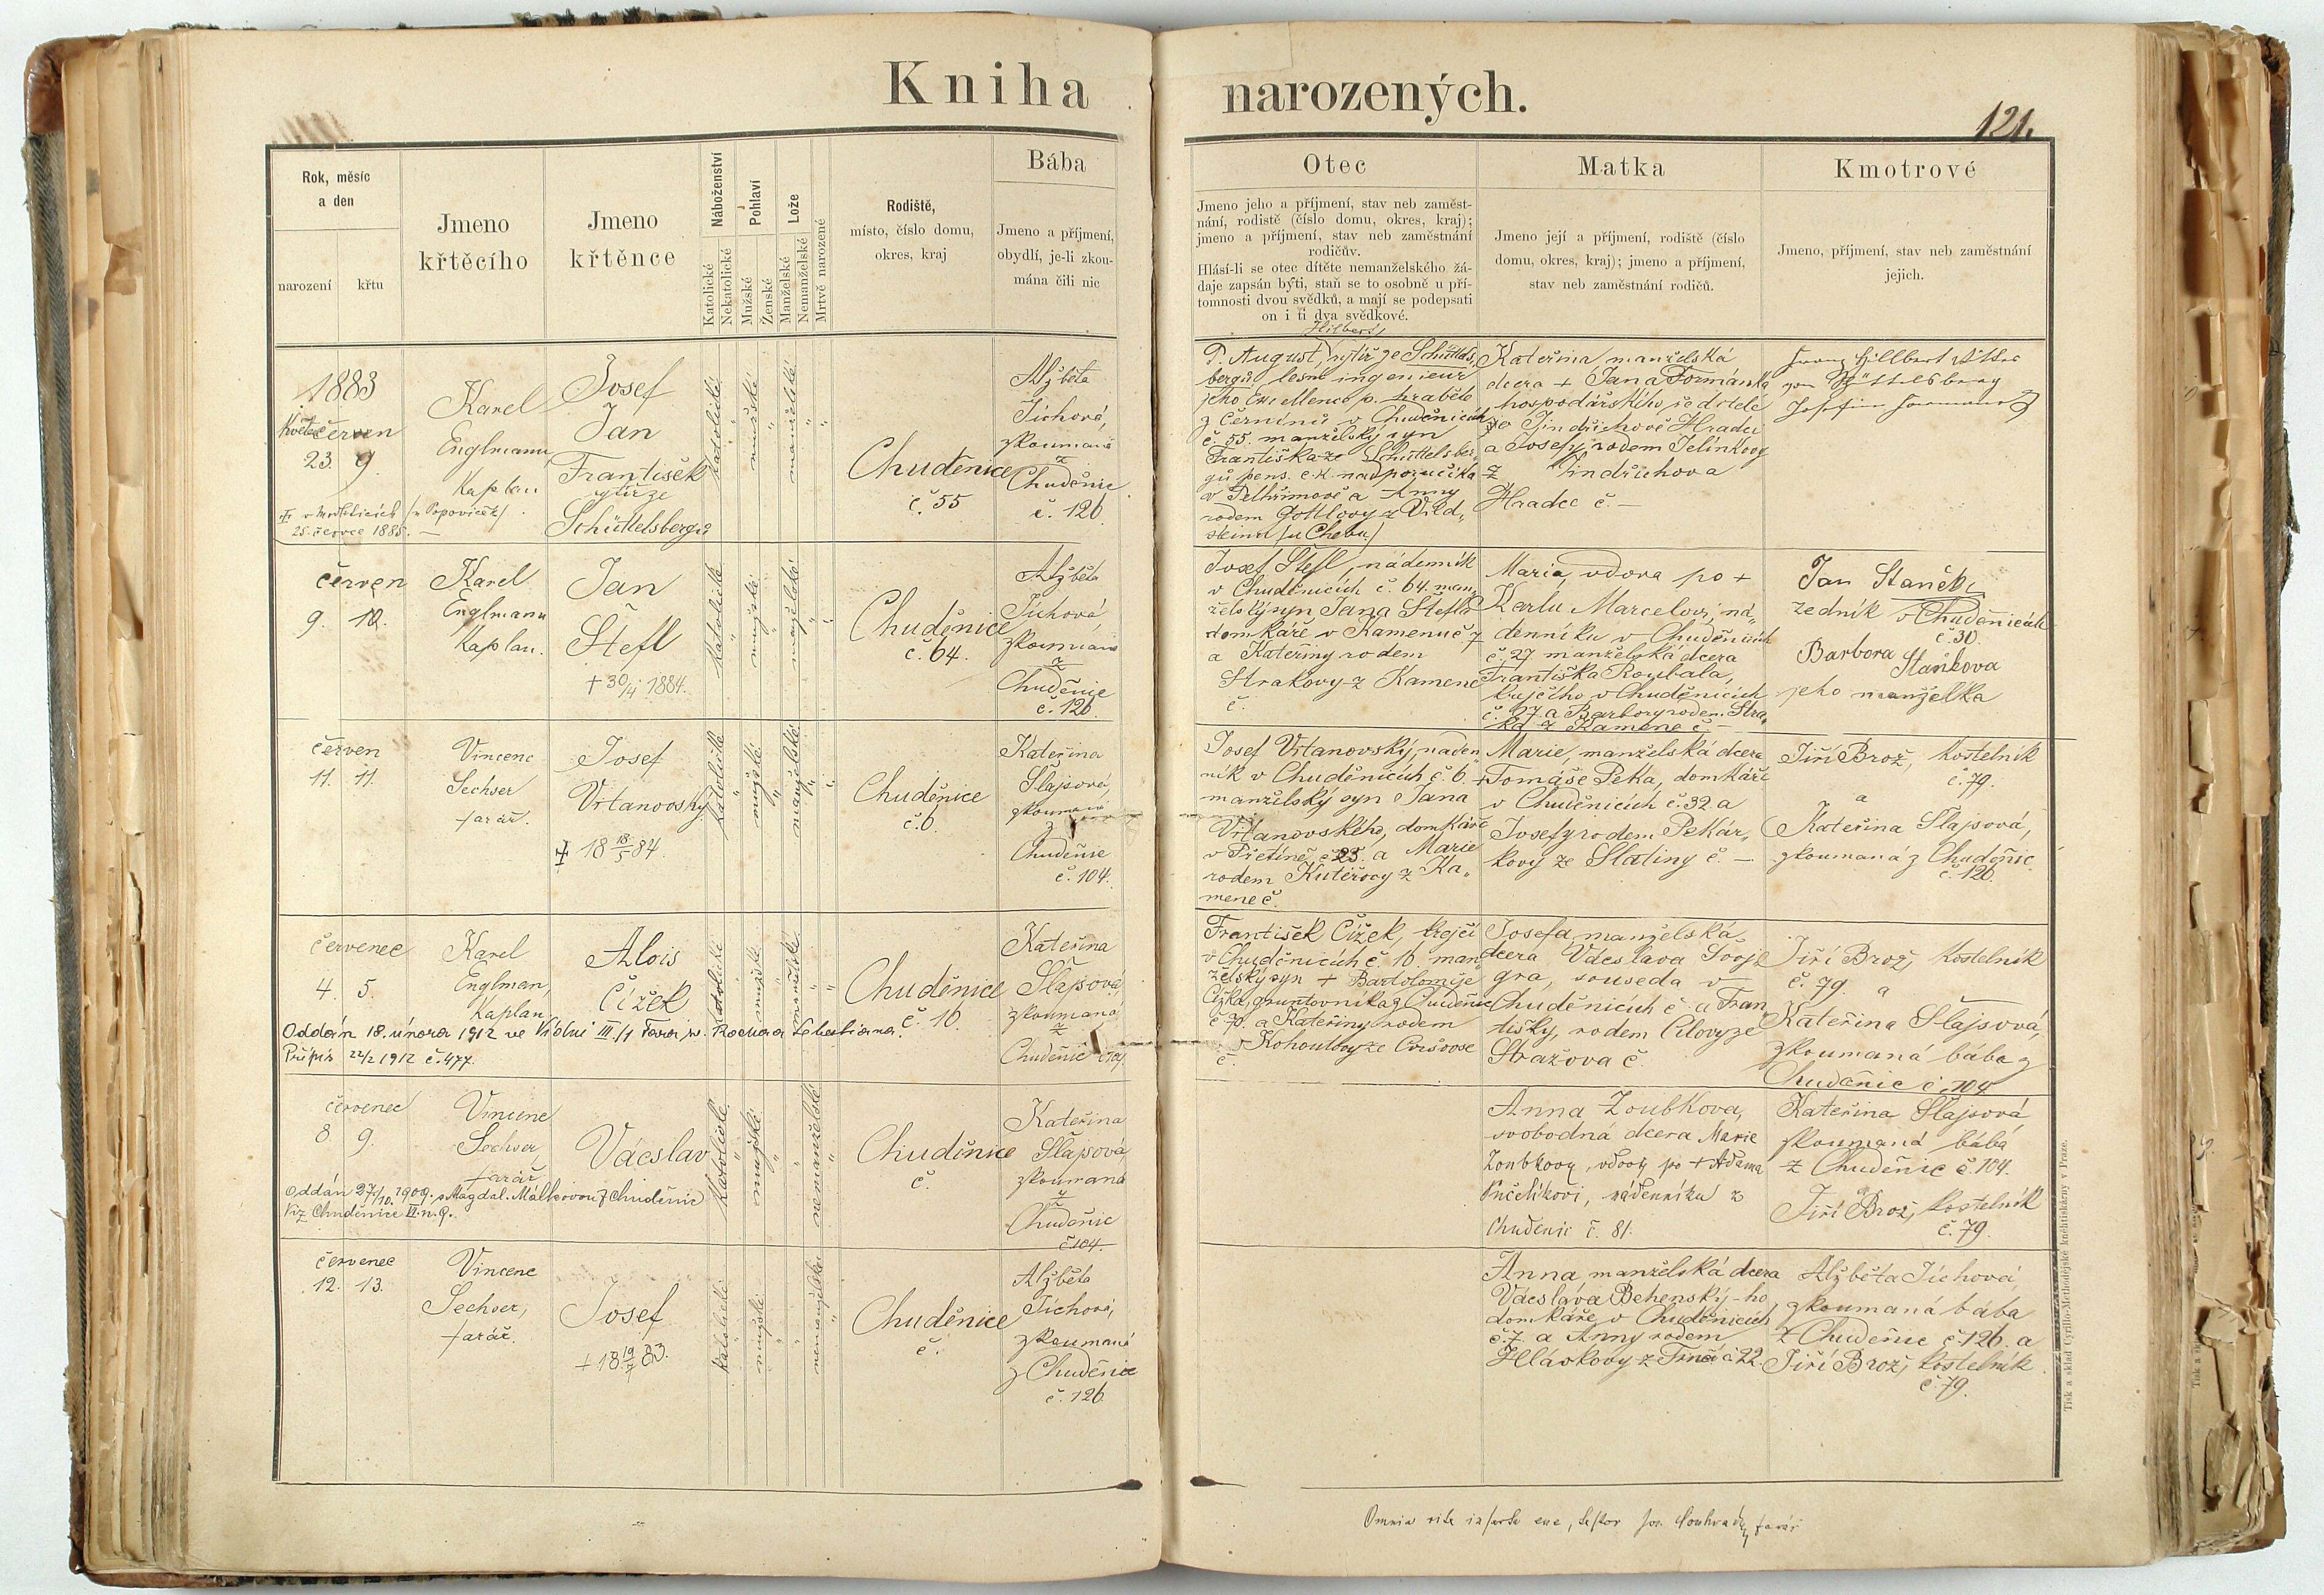 Kniha narozených.
121.
Rok, měsíc
a den
narození
křtu
Jmeno
křtěcího
Jmeno
křtěnce
Náboženství
Katolické
Nekatolické
Pohlaví
Mužské
Ženské
Lože
Manželské
Nemanželské
Mrtvě narozené
Rodiště,
místo, číslo domu,
okres, kraj
Bába
Jmeno a příjmení,
obydlí, je-li zkou-
mána čili nic
Otec
Jmeno jeho a příjmení, stav neb zaměst-
nání, rodiště (číslo domu, okres, kraj);
jmeno a příjmení, stav neb zaměstnání
rodičův.
Hlásí-li se otec dítěte nemanželského žá-
daje zapsán býti, staň se to osobně u pří-
tomnosti dvou svědků, a mají se podepsati
on i ti dva svědkové.
Matka
Jmeno její a příjmení, rodiště (číslo
domu, okres, kraj); jmeno a příjmení,
stav neb zaměstnání rodičů.
Kmotrové
Jmeno, příjmení, stav neb zaměstnání
jejich.
1883
Květen červen
23. 9.
25. července 1885.
Karel
Englmann
Kaplan
Josef
Jan
František
rytíř ze
Schüttelsbergů
katolické
mužské
manželské
Chuděnice
č. 55
Alžběta
Tichová,
zkoumaná
z
Chuděnic
č. 126.
Hilbert,
P. August, rytíř ze Schüttels-
bergů, lesní ingenieur
jeho Excellence p. hraběte
z Černínů v Chuděnicích
č. 55. manželský syn
Františka ze Schüttelsber-
gů pens. c. k. nadporučíka
v Pelhřimově a Anny
rodem Gottlovy z Vild-
steinu /u Chebu/
Kateřina, manželská
dcera + Jana Formánka
hospodářského ředitele
Jindřichově Hradci
a Josefy rodem Jelínkovy
z Jindřichova
Hradce č. —
Franz Hillbert Ritter
von Schüttelsberg
červen
9. 10.
Karel
Englmann
Kaplan.
Jan
Štefl
+ 30/4 1884.
katolické
mužské
manželské
Chuděnice
č. 64.
Alžběta
Tichová,
zkoumaná
z
Chuděnice
č. 126.
Josef Štefl, nádenník
v Chuděnicích č. 64. man-
želský syn Jana Štefla
domkáře v Kamenu č 7
a Kateřiny rodem
Strakovy z Kamene
č.
Maria, vdova po +
Karlu Marcelovi, ná-
denníku v Chuděnicích
č. 27 manželská dcera
Františka Roubala,
krejčího v Chuděnicích
č. 127. a Barbory rodem Stra-
ka z Kamene č. —
Jan Staněk,
zedník v Chuděnicích
č. 30.
Barbora
Staňkova
jeho manželka
červen
11. 11.
Vincenc
Sechser
farář.
Josef
Vrtanovský
18 18/5 84.
katolické
mužské
manželské
Chuděnice
č. 6.
Kateřina
Šlajsová,
zkoumaná
z
Chuděnic
č. 104.
Josef Vrtanovský, náden-
ník v Chuděnicích č. 6.
manželský syn Jana
Vrtanovského, domkáře
v Přetíně č 25. a Marie
rodem Kutěřovy z Ka-
mene č.
Marie, manželská dcera
+ Tomáše Peka, domkáře
v Chuděnicích č. 32. a
Josefy rodem Pekár-
kovy ze Slatiny č. —
Jiří Brož, kostelník
č. 79.
a
Kateřina Šlajsová,
zkoumaná z Chuděnic
č. 126.
červenec
4. 5.
Karel
Englman,
Kaplan
Alois
Čížek
katolické
mužské
manželské
Chuděnice
č. 10.
Kateřina
Šlajsová,
zkoumaná
z
Chuděnic č 104.
Oddán 18. února 1912 ve Vídni III./1 Fara sv. Rocha a Šebestiana.
Přípis 22/2 1912 č. 477.
František Čížek, krejčí
v Chuděnicích č. 10. man-
želský syn + Bartoloměje
Čížka, gruntovníka z Chuděnic
č 70. a Kateřiny rodem
Kohoutovy ze
č.
Josefa manželská
dcera Vácslava Svoj-
gra, souseda v
Chuděnicích č a Fran-
tišky, rodem Cílovy ze
Stražova č.
Jiří Brož, kostelník
č. 79. a
Kateřina Šlajsová,
zkoumaná bába z
Chuděnic č. 104.
červenec
8 9.
Vincenc
Sechser,
farář
Vácslav
katolické
mužské
nemanželské
Chuděnice
č.
Kateřina
Šlajsová,
zkoumaná
z
Chuděnic
č 104.
Oddán 27/10. 1909. s Magdal. Málkovou z Chuděnic
Viz Chuděnice II. n. 9.
Anna Zoubkova,
svobodná dcera Marie
Zoubkovy, vdovy po + Adama
nádenníku z
Chuděnic č. 81.
Kateřina Šlajsová
zkoumaná bába
z Chuděnic č. 104.
a
Jiří Brož, kostelník
č. 79.
červenec
12. 13.
Vincenc
Sechser,
farář.
Josef
+ 18 19/7 83.
katolické
mužské
nemanželské
Chuděnice
č.
Alžběta
Tichová,
zkoumaná
z Chuděnice
č. 126.
Anna manželská dcera
Vácslava Behenský-ho
domkáře v Chuděnicích
č. 7. a Anny rodem
Hlávkovy z Trnčí č 22.
Alžběta Tichová,
zkoumaná bába
z Chuděnic č. 126. a
Jiří Brož, kostelník
č. 79.
Tisk a sklad Cyrillo-Methodějské kněhtiskárny v Praze.